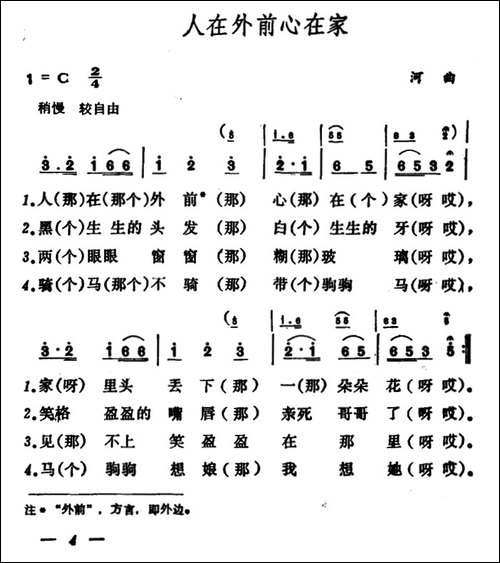 人在外前心在家
1 = C 2/4
河 曲
稍慢 较自由
(3 | i·6 | 55 | 63 2) |
3·2 i66 | i 2 3 | 2·i | 6 5 | 6553 2 |
1.人(那)在(那个)外 前*(那) 心(那) 在(个)家(呀 哎),
2.黑(个)生 生的 头 发(那) 白(个) 生生的 牙(呀 哎),
3.两(个)眼眼 窗 窗(那) 糊(那)玻 璃(呀 哎),
4.骑(个)马(那个)不 骑(那) 带(个)驹驹 马(呀 哎),
3·2 i66 | i 2 3 | 2·i 65 | 6553 5 :|
1.家(呀) 里头 丢 下(那) 一(那) 朵朵 花(呀 哎)。
2.笑格 盈盈的 嘴 唇(那) 亲死 哥哥 了(呀 哎)。
3.见(那) 不上 笑 盈盈 在 那 里(呀 哎)。
4.马(个) 驹驹 想 娘(那) 我 想 她(呀 哎)。
注*“外前”,方言,即外边。
— 4 —